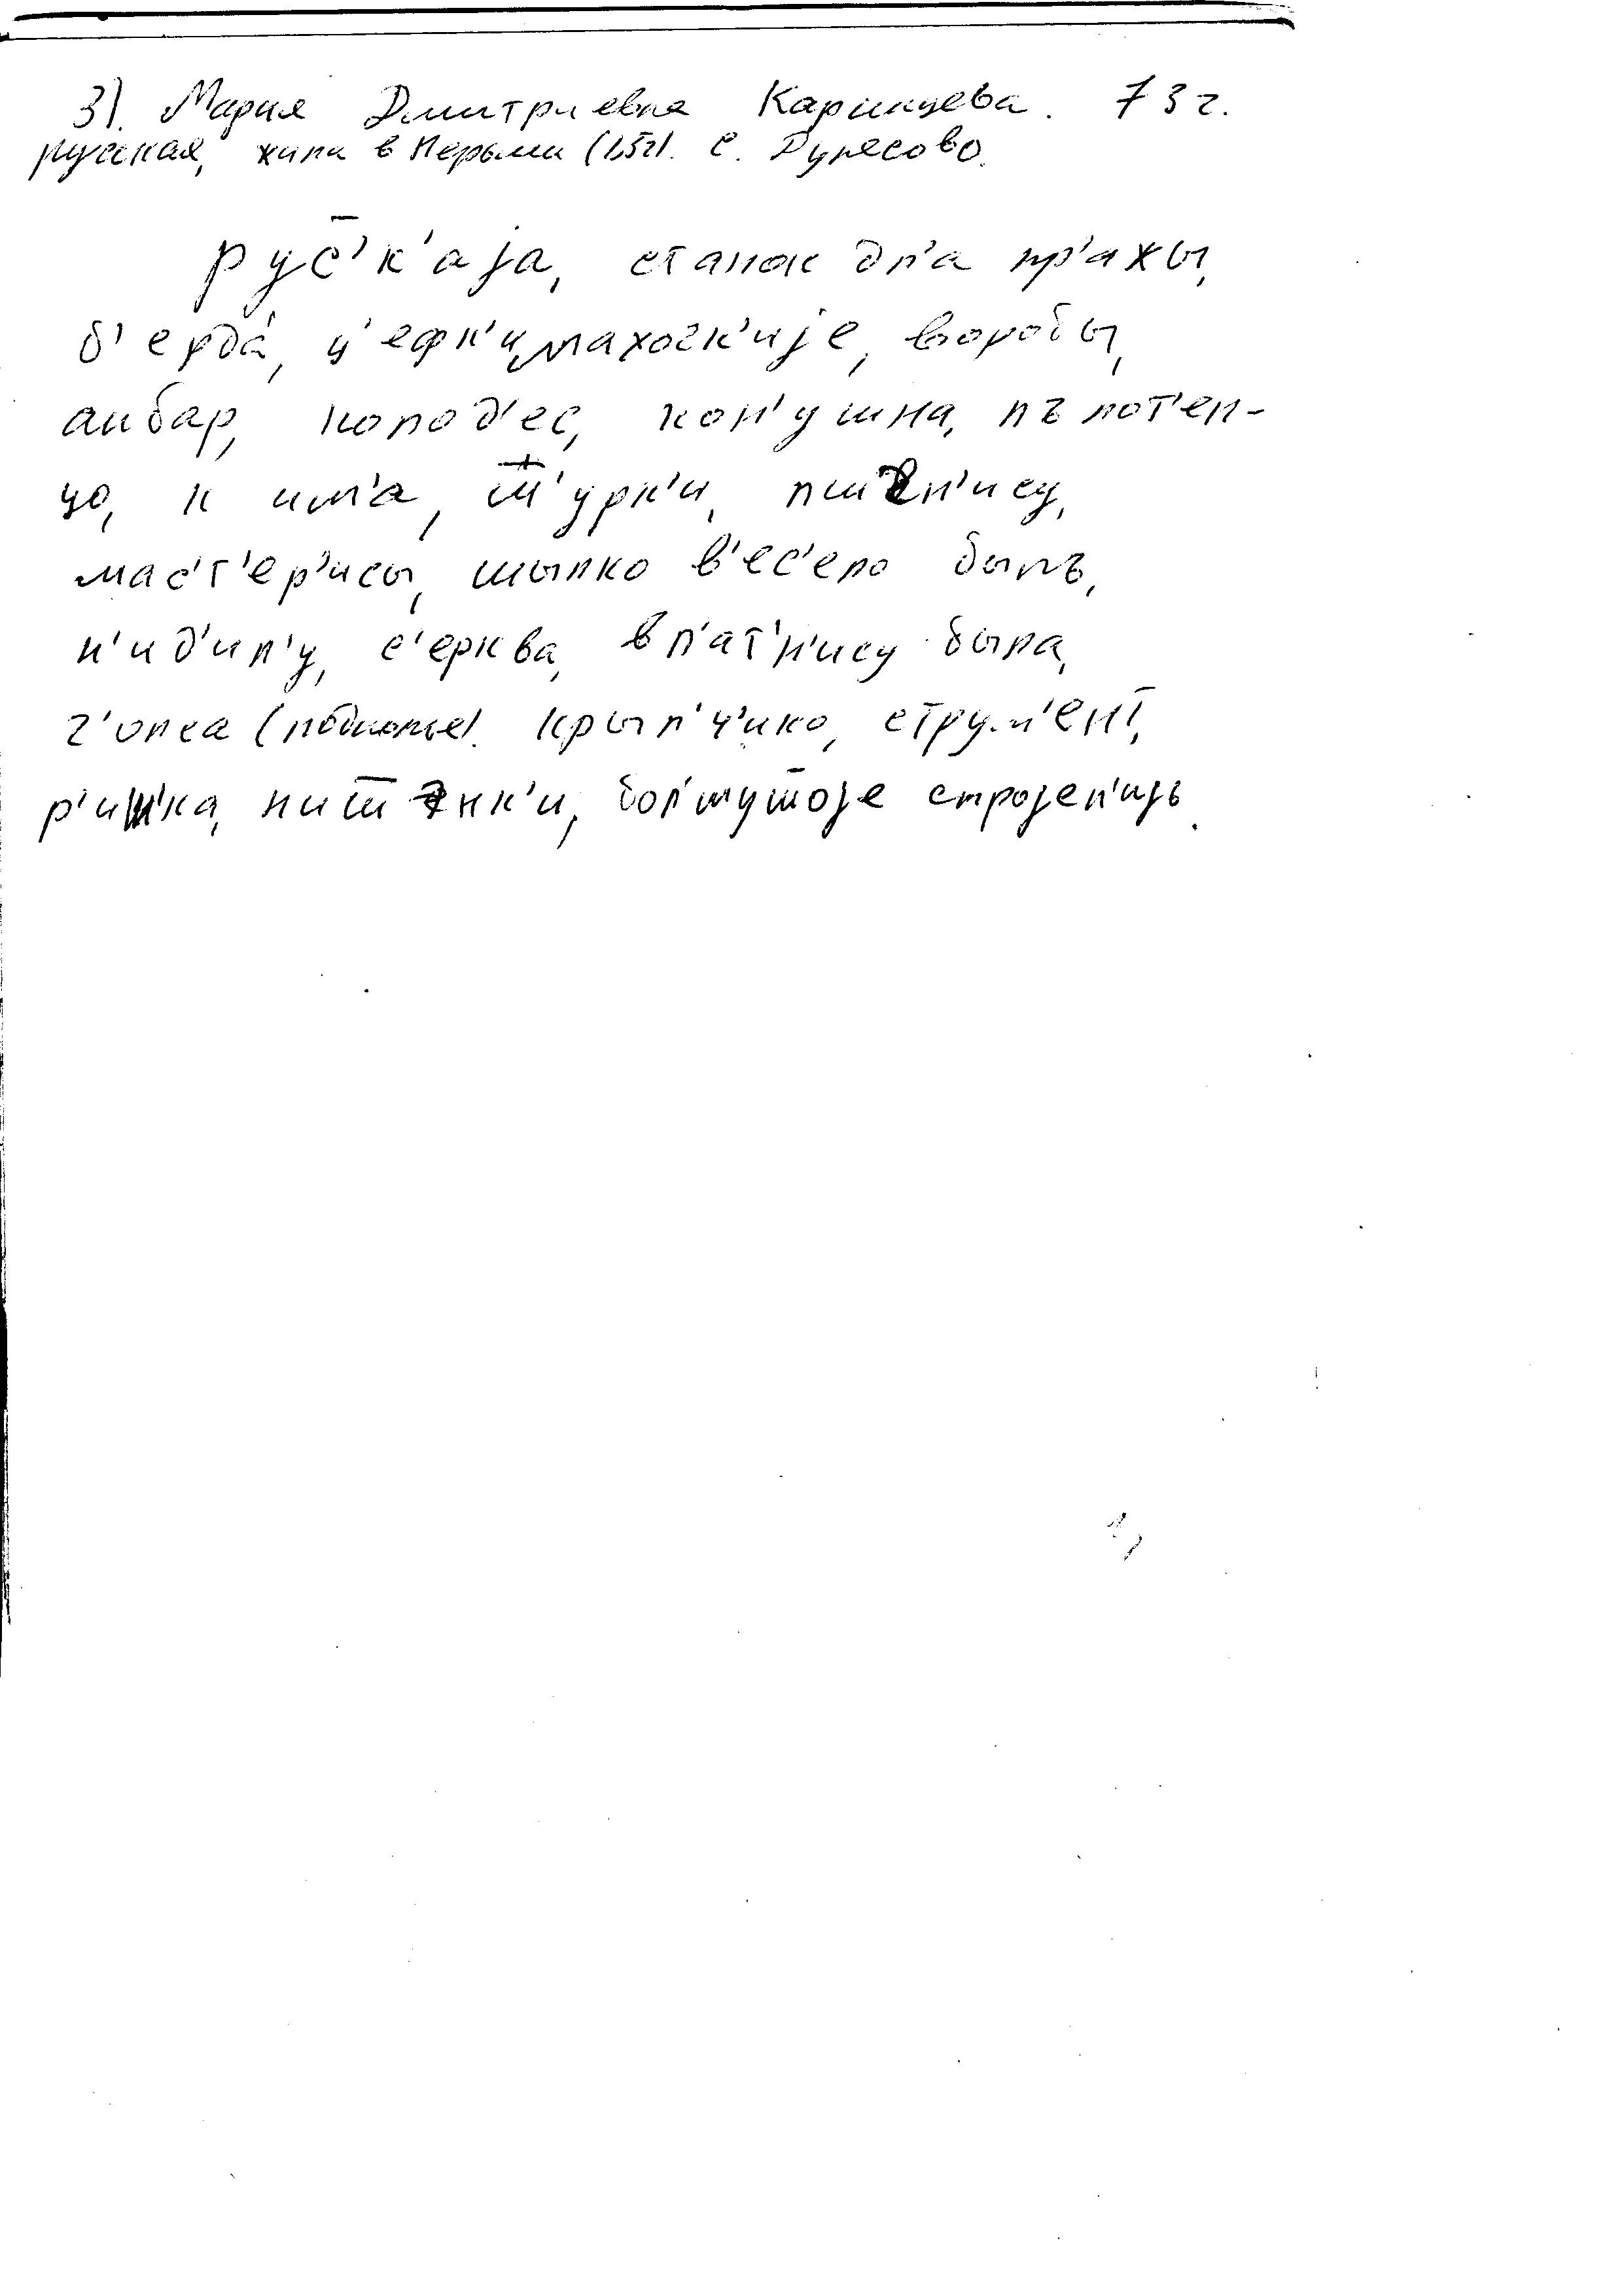 3). Мария Дмитриевна Каринцева. 73 г.
русская, жила в Перьми (1,5 г). с. Дулесово.
рус̄'к'аjа, станок дл'а пр'ажы,
б'ерда́, ц'ефк'и, махос'к'иjе, воробы,
анбар, колод'ес, кон'ушна, пълот'ен-
цо, к им'а, т'урк'и, пшен'ису,
мас'т'ер'исы, шылко в'ес'еро былъ,
н'ид'ил'у, с'ерква, в п'ат'н'ису была,
г'олса (подполье). крыл'ч'ико, струм'ент,
р'ишка, нит нк'и, бол'шушоjе строjен'иjь.